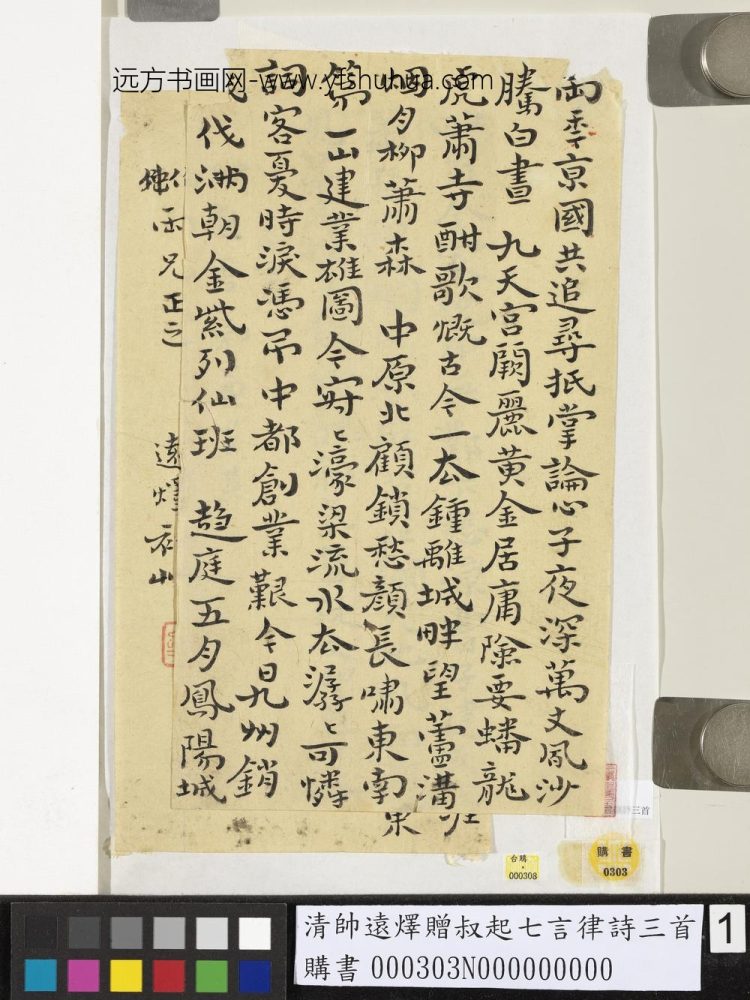 远方书画网-www.yishuhua.com
兩季京國共追尋抵掌論心子夜深萬丈風沙
騰白晝 九天宮闕麗黃金居庸險要蟠龍
虎蕭寺酣歌慨古今一太鍾離城畔望蘆溝
月柳蕭森 中原北顧鎖愁顏長嘯東南
第一山建業雄圖今寂〻濠梁流水太潺〻可憐
詞客憂時淚憑弔中都創業艱今日九州銷
伐滿朝金紫列仙班 趨庭五月鳳陽城
兄正之
遠燡
三首
台購
000308
購書
0303
清帥遠燡贈叔起七言律詩三首
購書 000303N000000000
1